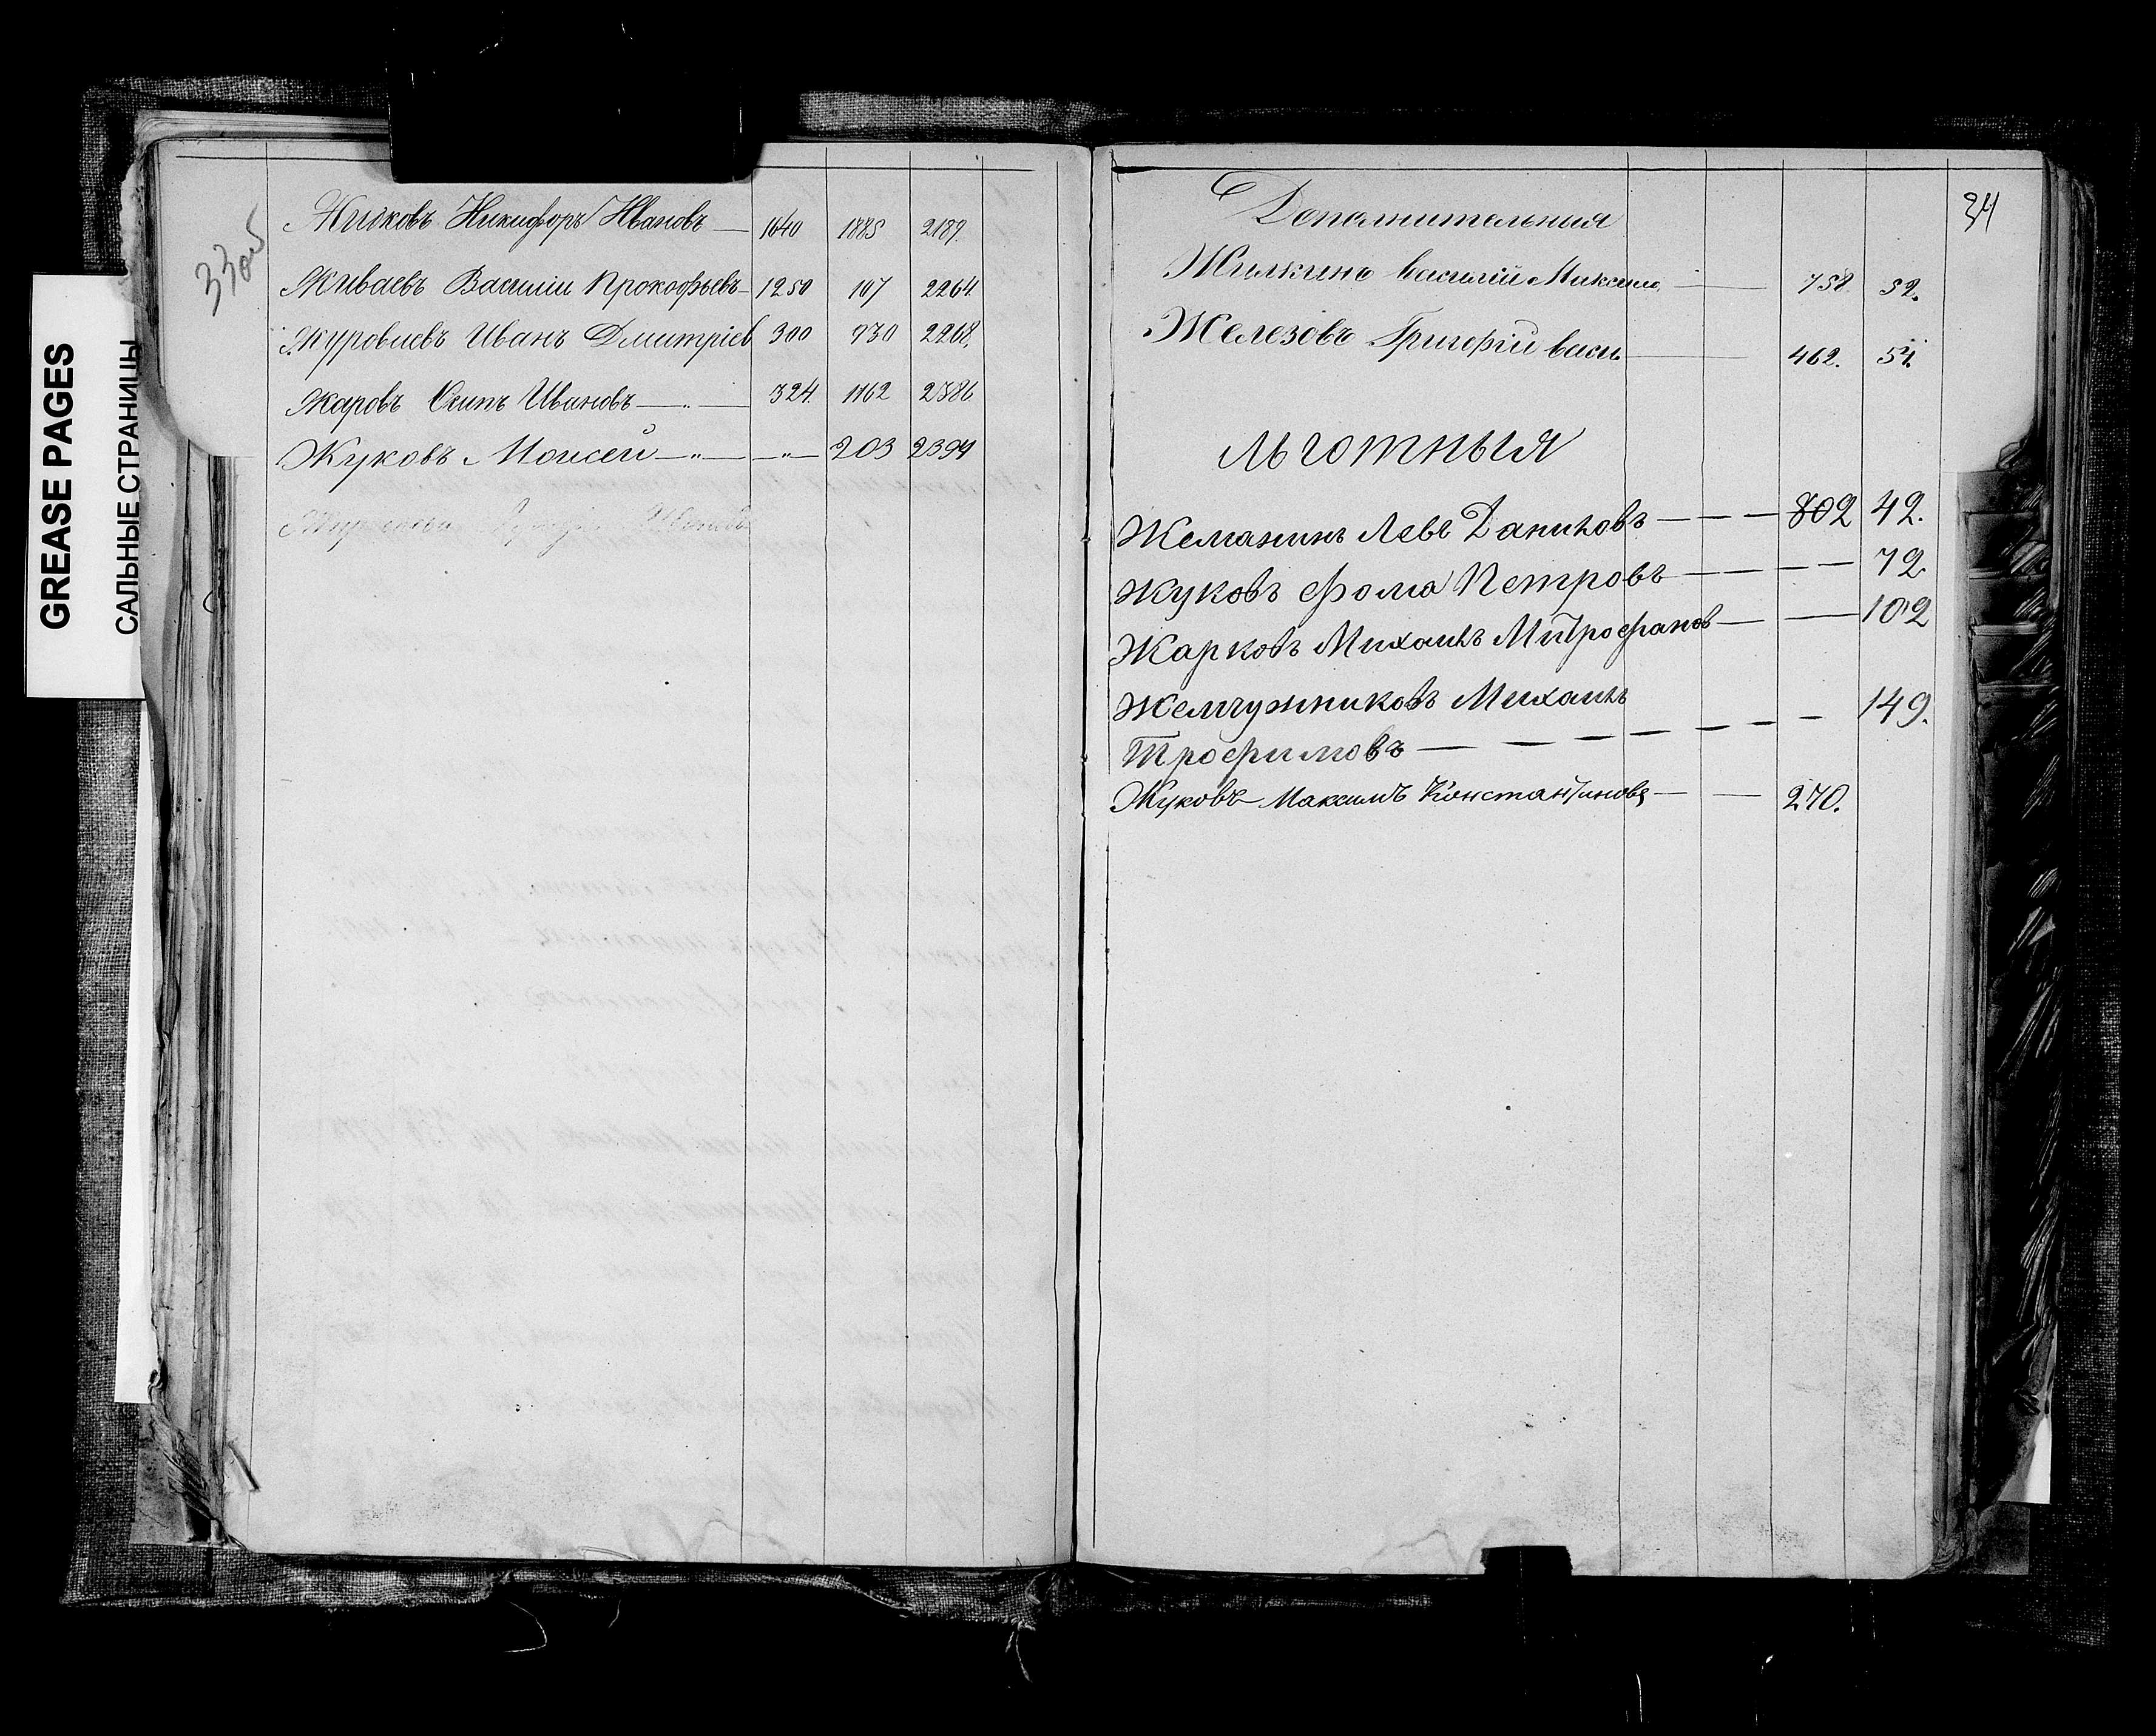 GREASE PAGES
САЛЬНЫЕ СТРАНИЦЫ
33об
Жуковъ Никифоръ Ивановъ — 1640 1885 2189.
Живаевъ Василій Прокофьевъ — 1250 107 2264.
Журовлевъ Иванъ Дмитріев 300 930 2268.
Жаровъ Осипъ Ивановъ — „ — 324. 1162 2386
Жуковъ Моисей — „ — — „ — 203 2394
34
Дополнительныя
Жилкинъ Василій Максим. — 758. 52.
Железовъ Григорій васи. — 462. 54.
Льготныя
Жеманинъ Левъ Даниловъ — — — 802 42.
Жуковъ Фома Петровъ — — — — 72
Жарковъ Михаилъ Митрофановъ — — 102
Жемчужниковъ Михаилъ 149.
Трофимовъ — — — — — — —
Жуковъ Максимъ Константиновъ — — 270.